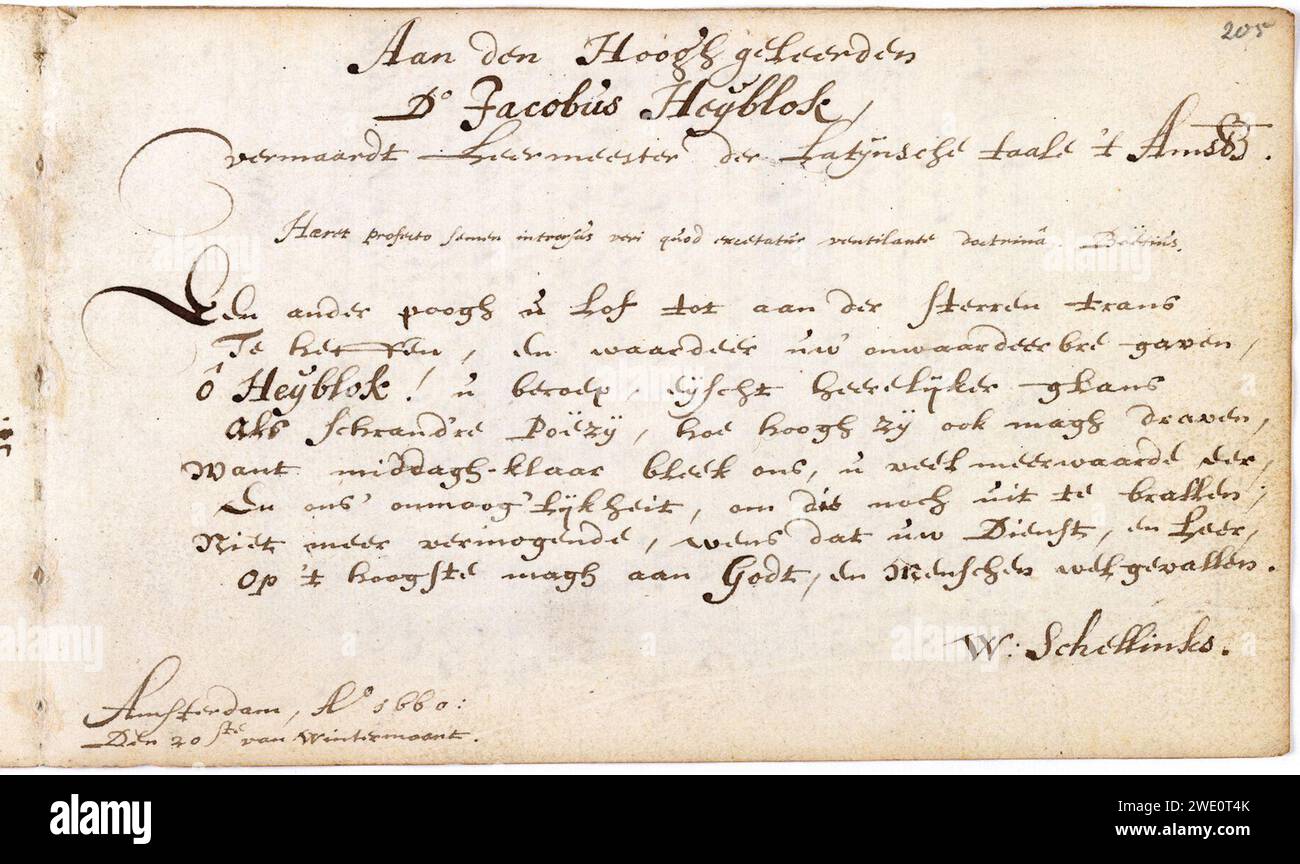 205
Aan den Hoogh geleerden
Do Jacobus Heyblok,
vermaardt Leermeester der Latynsche taale 't
Hæret profecto semen introrsus veri quod excitatur ventilante doctrinâ. Boëtius.
Een ander poogh u Lof tot aan der sterren trans
Te heffen, en waardeer uw onwaardeerbre gaven,
ô Heyblok! u beroep eyscht heerelyker glans
Als schrand're Poëzy, hoe hoogh zy ook magh draven,
Want middagh-klaar bleek ons, u veel meerwaarde eer,
En ons onmoog'lykheit, om die noch uit te brallen;
Niet meer vermogende, wens dat uw Dienst, en Leer,
Op 't hoogste magh aan Godt, en Menschen welgevallen.
W: Schellinks.
Amsterdam, Ao 1660:
Den 20ste van Wintermaant.
alamy
Image ID: 2WE0T4K
www.alamy.com